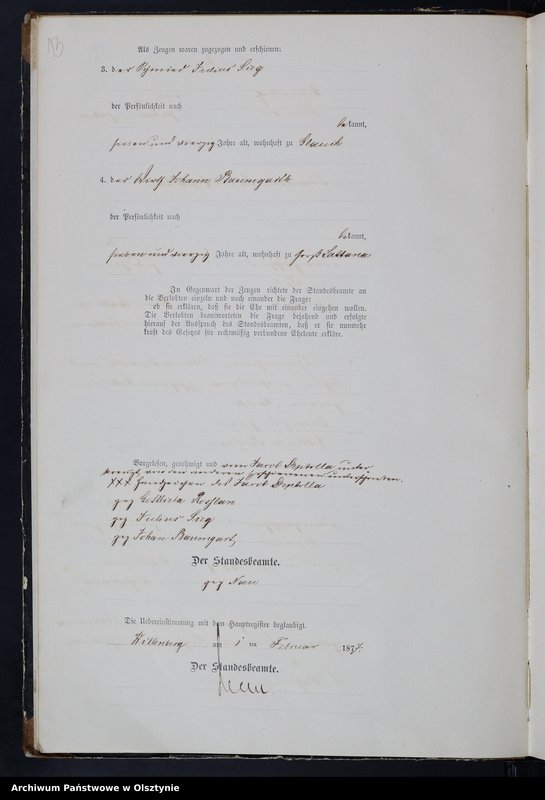 Als Zeugen waren zugezogen und erschienen:
3. der Schmied Julius Sieg
der Persönlichkeit nach
bekannt,
sieben und vierzig Jahre alt, wohnhaft zu
4. der Wirth Johann Baumgarth
der Persönlichkeit nach
bekannt,
sieben und vierzig Jahre alt, wohnhaft zu Groß
In Gegenwart der Zeugen richtete der Standesbeamte an
die Verlobten einzeln und nach einander die Frage:
ob sie erklären, daß sie die Ehe mit einander eingehen wollen.
Die Verlobten beantworteten die Frage bejahend und erfolgte
hierauf der Ausspruch des Standesbeamten, daß er sie nunmehr
kraft des Gesetzes für rechtmäßig verbundene Eheleute erkläre.
Vorgelesen, genehmigt und vom Jacob Deptolla unter
kreuzt, von den anderen unterschrieben.
XXX Handzeichen des Jacob Deptolla
gez Gottliebe
gez Julius Sieg
gez Johan Baumgart,
Der Standesbeamte.
gez
Die Uebereinstimmung mit dem Hauptregister beglaubigt.
Willenberg am 1 ten Februar 1877.
Der Standesbeamte.
Archiwum Państwowe w Olsztynie